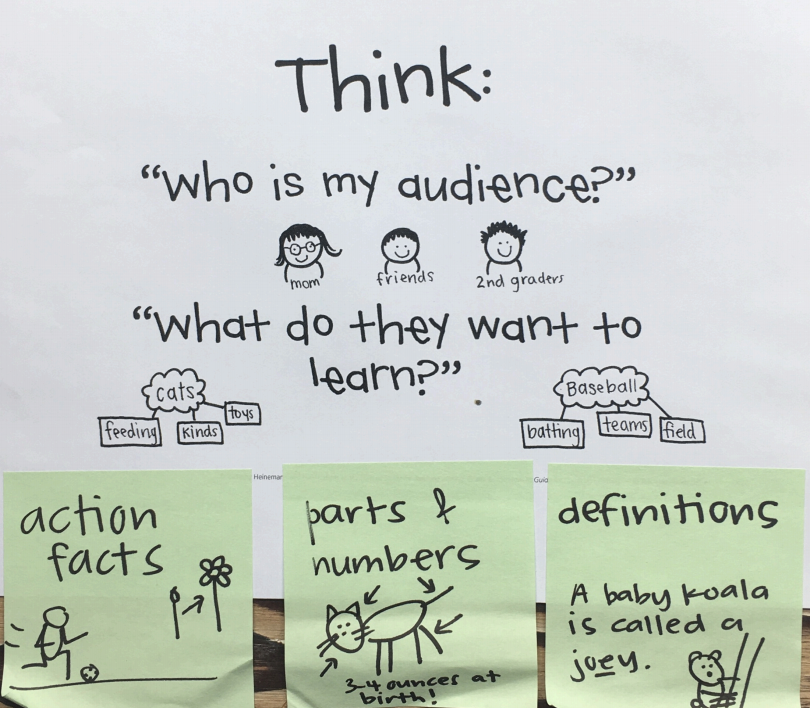 Think:
“Who is my audience?”
mom
friends
2nd graders
“What do they want to
learn?”
cats
feeding
kinds
toys
Baseball
batting
teams
field
action
facts
parts &
numbers
3-4 ounces at
birth!
definitions
A baby koala
is called a
joey.